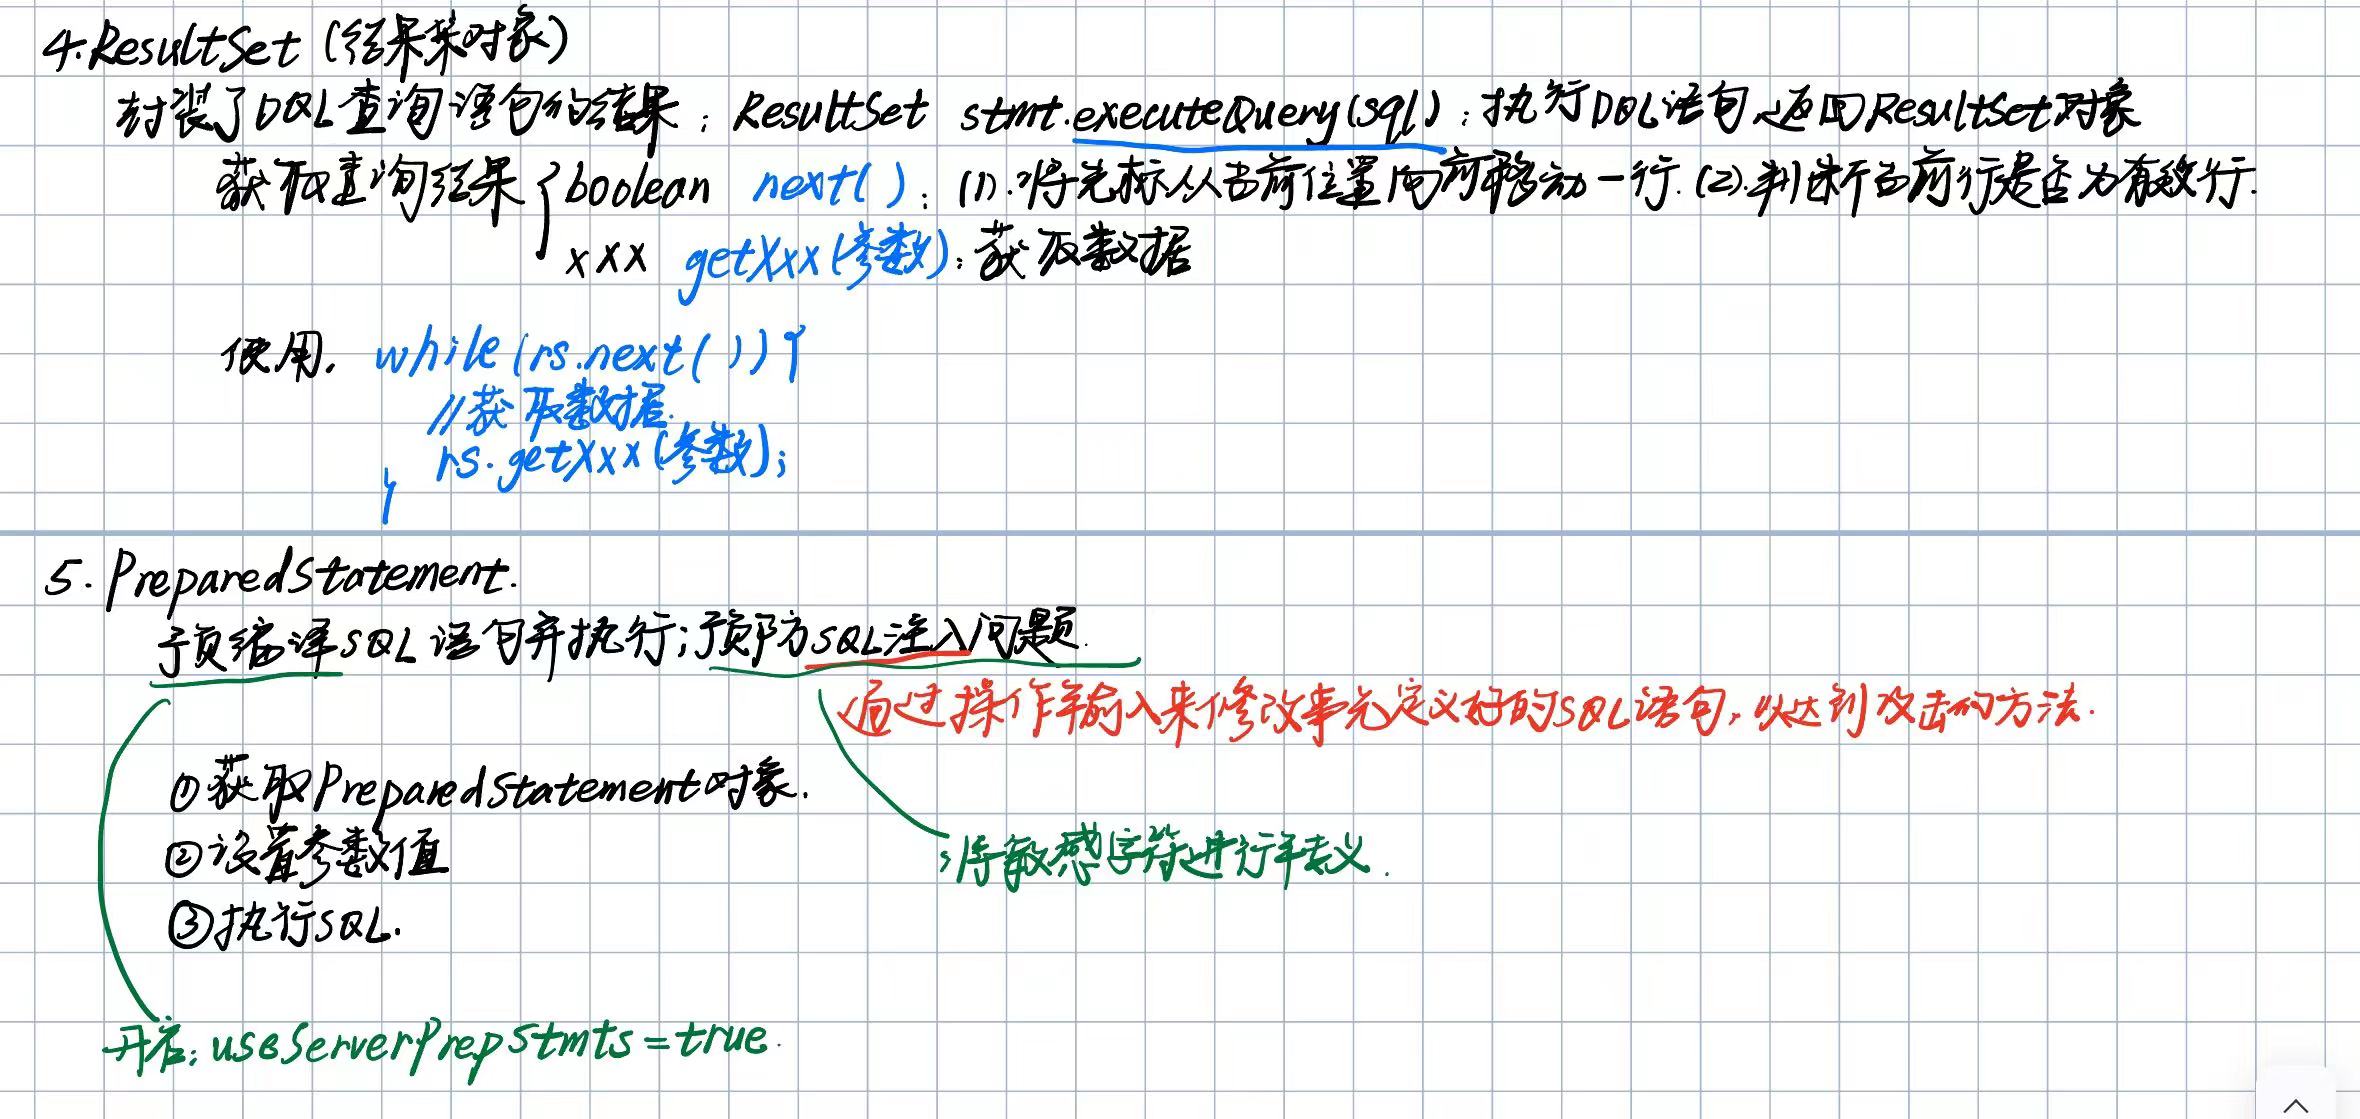 4.ResultSet(结果集对象)
封装了DQL查询语句的结果:ResultSet stmt.executeQuery(sql):执行DQL语句,返回ResultSet对象
获取查询结果{boolean next():(1).将光标从当前位置向前移动一行.(2).判断当前行是否为有效行.
xxx getXxx(参数):获取数据
使用. while(rs.next()){
//获取数据.
rs.getXxx(参数);
}
5.PreparedStatement.
预编译SQL语句并执行;预防SQL注入问题.
通过操作输入来修改事先定义好的SQL语句,以达到攻击的方法.
①获取PreparedStatement对象.
②设置参数值
:将敏感字符进行转义.
③执行SQL.
开启:useServerPrepStmts=true.